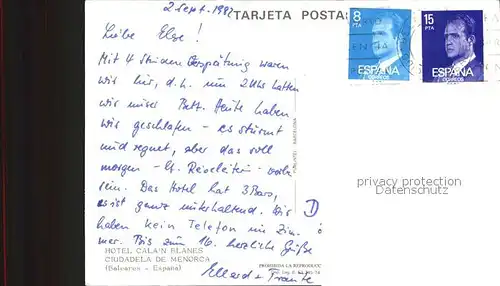 2. Sept. 1982
TARJETA POSTAL
Liebe Else!
8 PTA
ESPAÑA
CORREOS
15 PTA
ESPAÑA
CORREOS
Mit 4 Stunden Verspätung waren
wir hier, d.h. um 2 Uhr hatten
wir unser Bett. Heute haben
wir geschlafen - es stürmt
und regnet, aber das soll
morgen - lt. Reiseleitern - vorbei
sein. Das Hotel hat 3 Bars,
es ist ganz unterhaltend. Wir
haben kein Telefon im Zim-
mer. Bis zum 16. herzliche Grüße
D
HOTEL CALA'N BLANES
CIUDADELA DE MENORCA
(Baleares - España)
PROHIBIDA LA REPRODUC
privacy protection
Oldthing.de